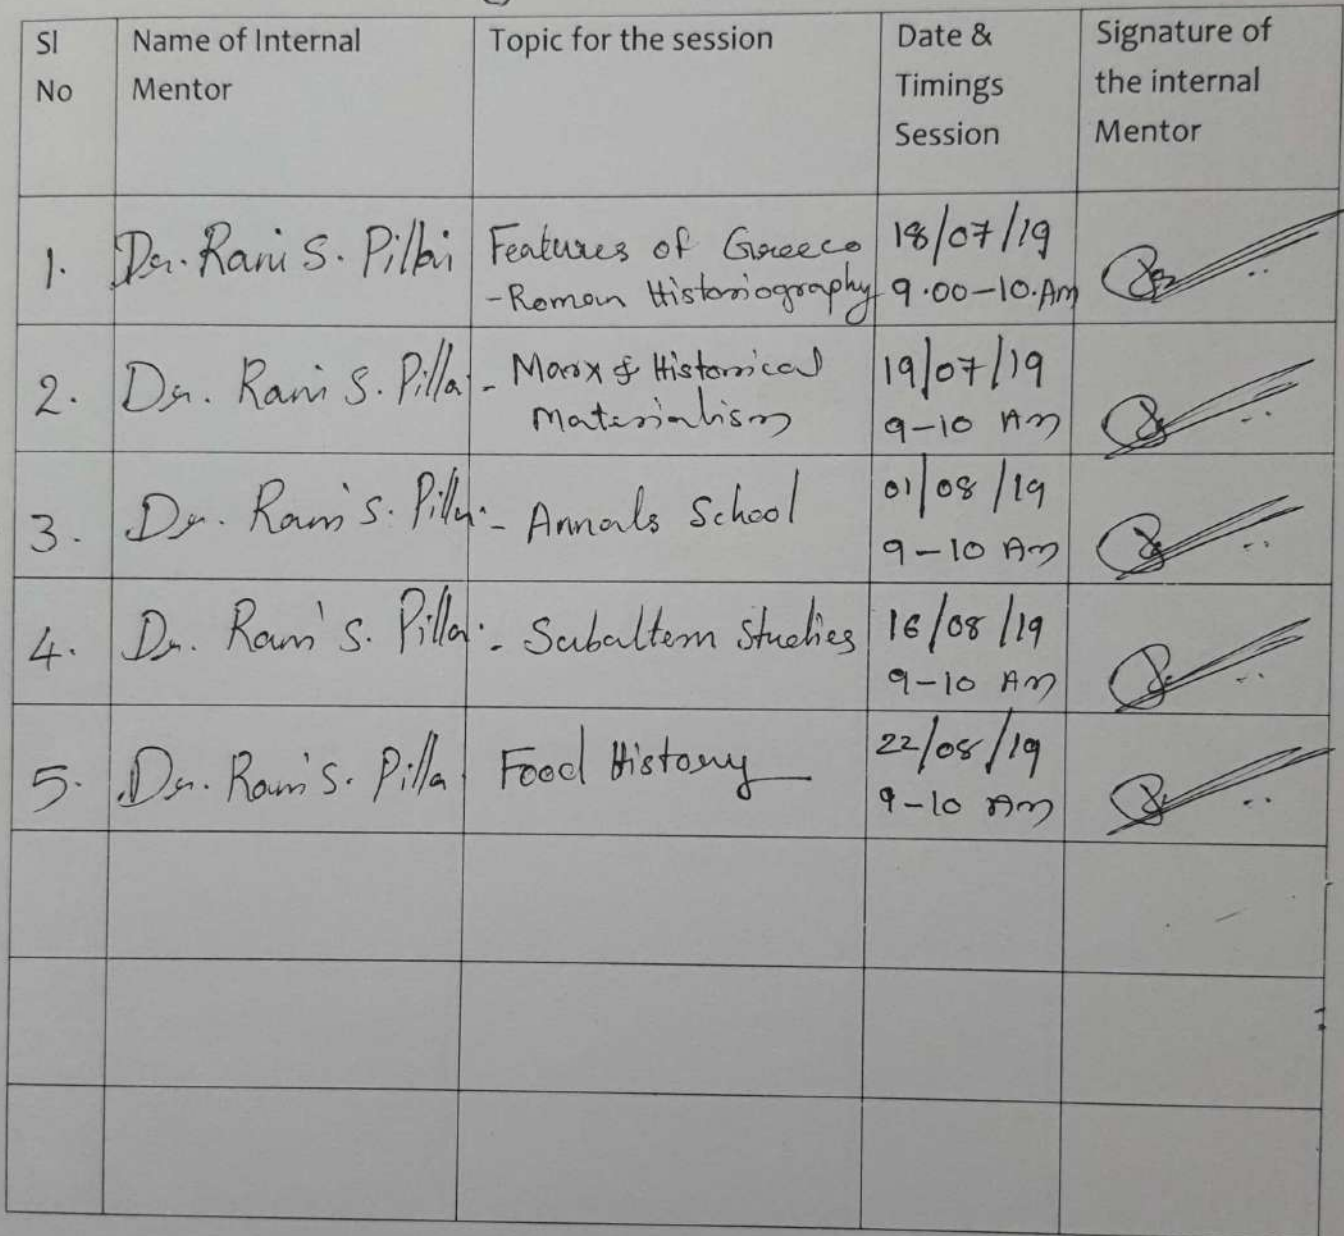 Sl No | Name of Internal Mentor | Topic for the session | Date & Timings Session | Signature of the internal Mentor
1. | Dr. Rani S. Pillai | Features of Greeco -Roman Historiography | 18/07/19 9.00-10.Am
2. | Dr. Rani S. Pillai | - Marx & Historical Materialism | 19/07/19 9-10 Am
3. | Dr. Rani S. Pillai | - Annals School | 01/08/19 9-10 Am
4. | Dr. Rani S. Pillai | - Subaltern Studies | 16/08/19 9-10 Am
5. | Dr. Rani S. Pilla | Food History | 22/08/19 9-10 Am